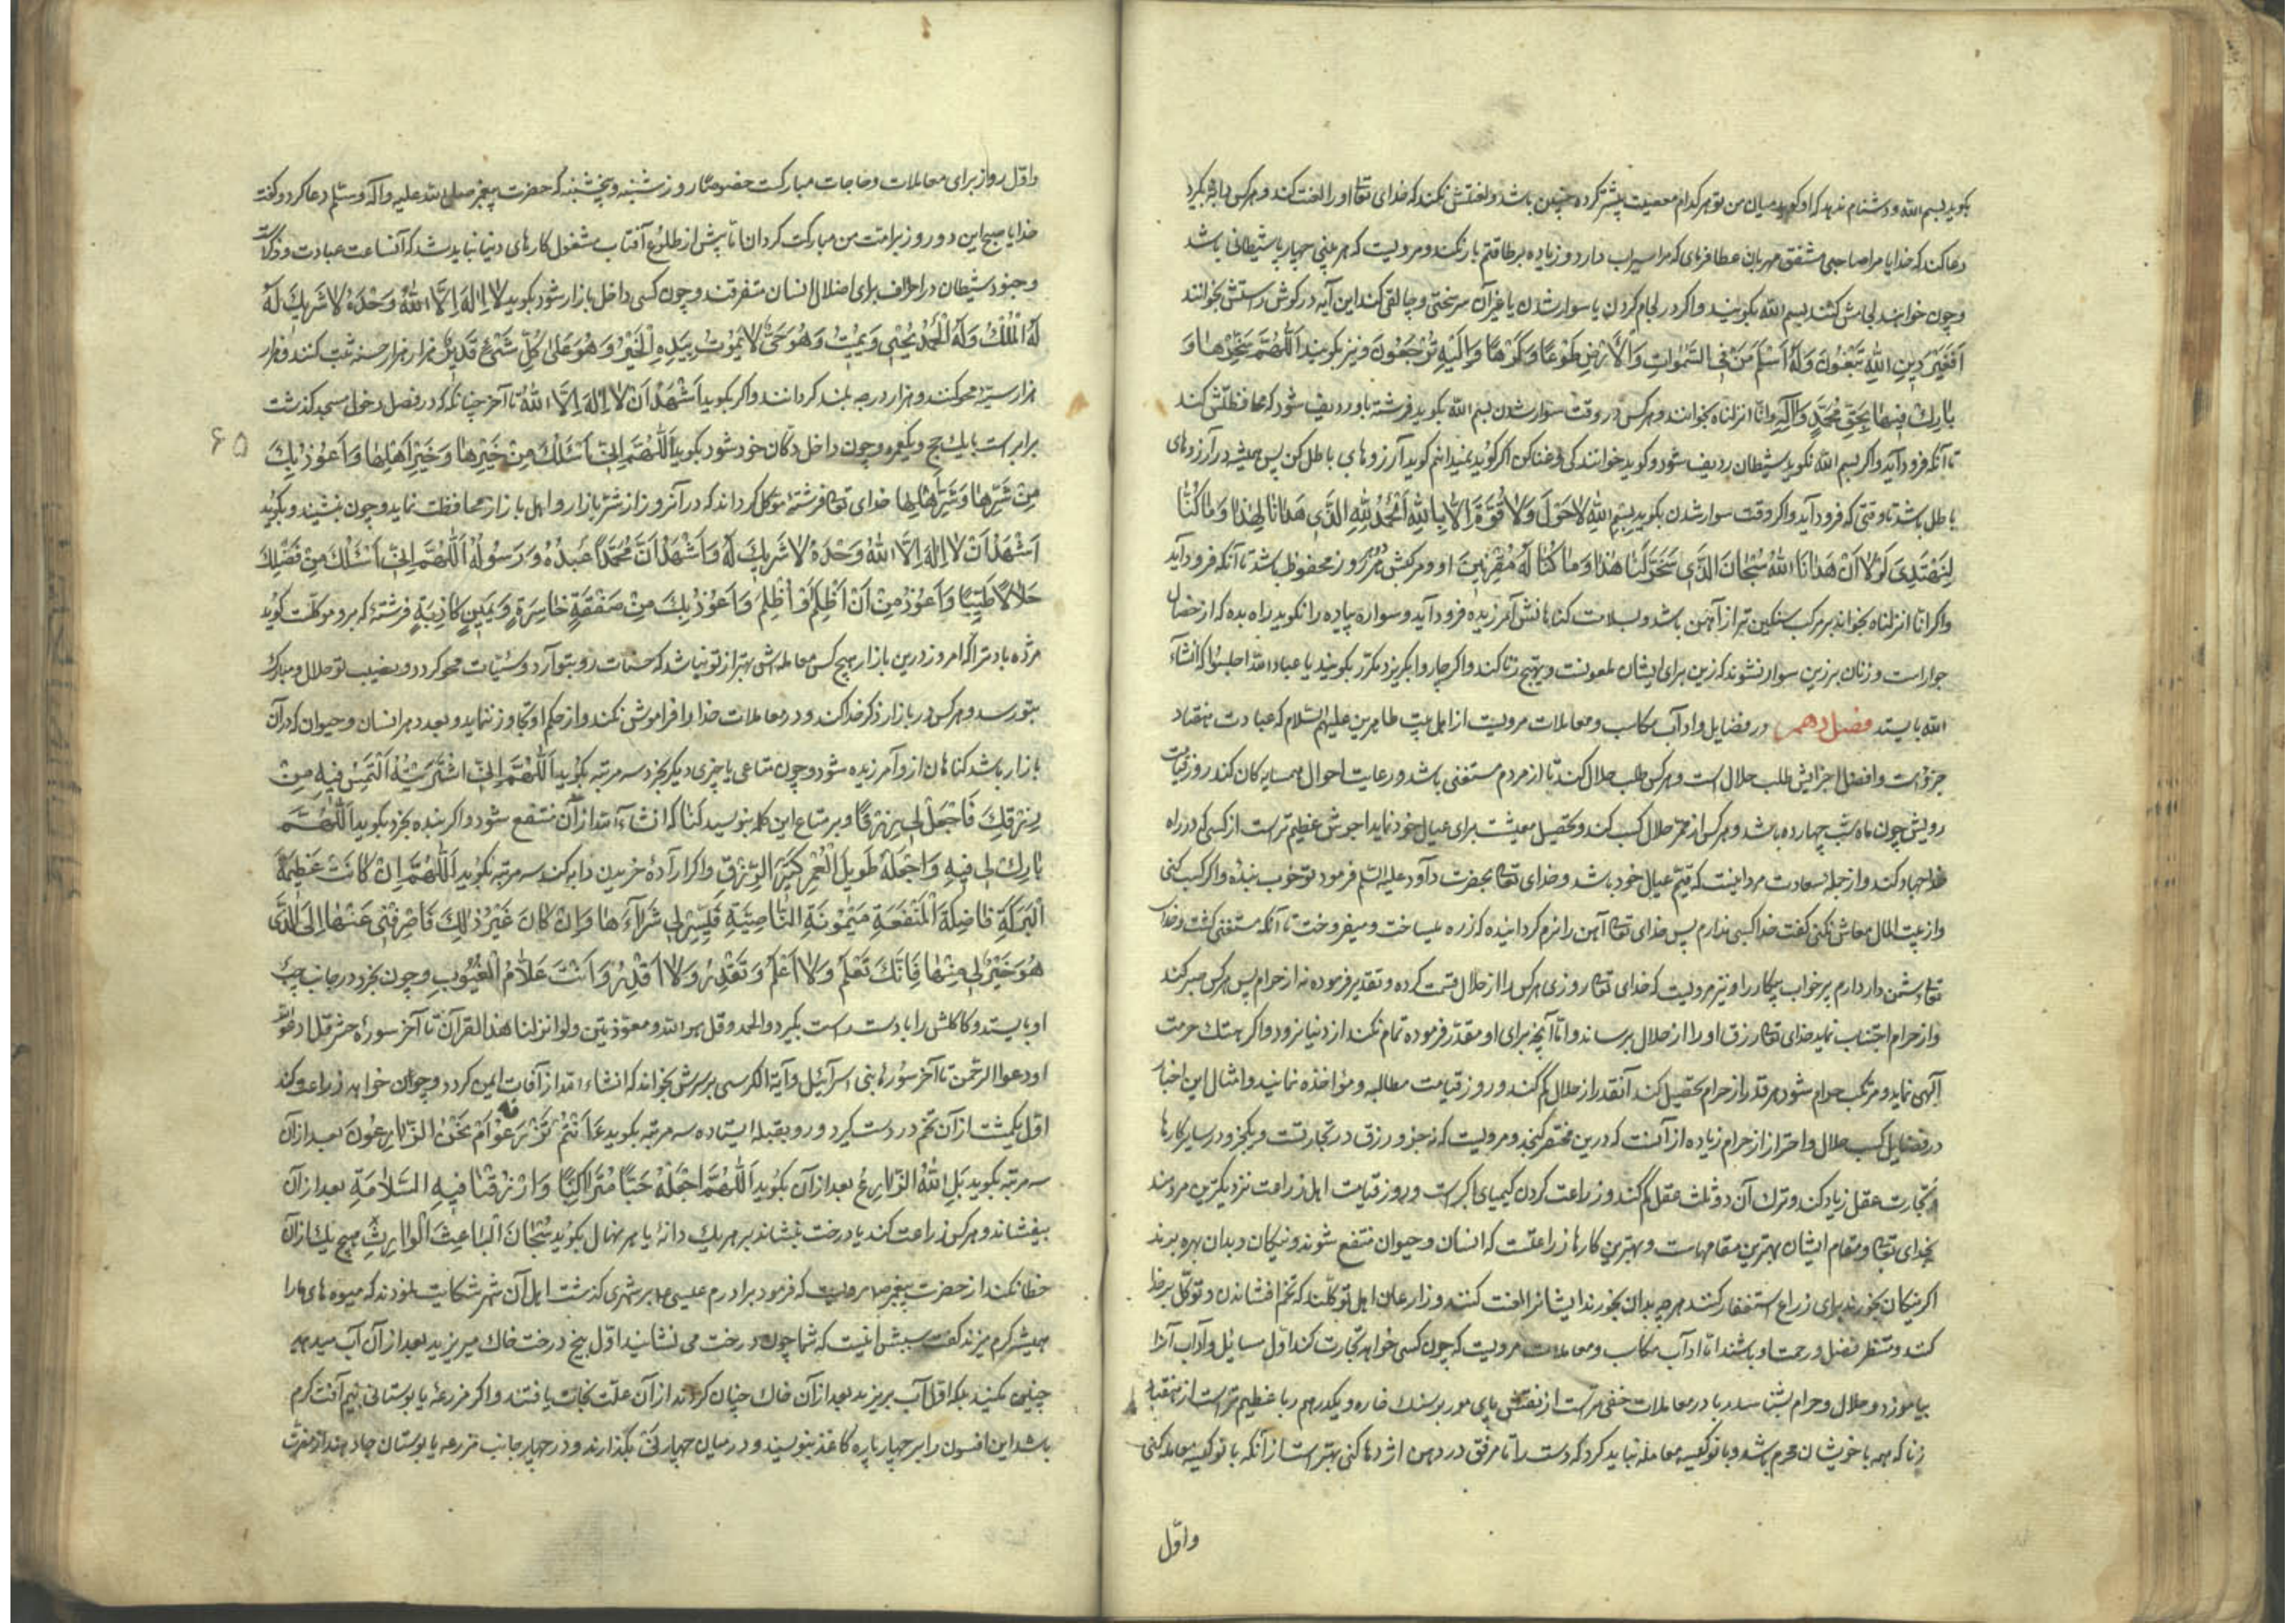 بکوید بسم الله و دشنام ندهد که او کوید میان من و تو هر کدام معصیت بیشتر کرده چنین باشد و لعنتش نکند که خدای تعا او را لعنت کند و هر کس
دعا کند که خدایا مرا صاحبی مشفق مهربان عطا فرمای که مرا سیراب دارد و زیاده بر طاقتم بار نکند و مرویست که هر بینی چهارپا شیطانی باشد
و چون خواهند لجامش کنند بسم الله بکویند و اکر در لجام کردن یا سوار شدن یا غیر آن سرسختی و چالقی کند این آیه در کوش راستش بخوانند
اَفَغَیْرَ دینِ اللهِ تَبْغُونَ وَلَهُ اَسْلَمَ مَنْ فِی السَّمٰوٰاتِ وَالْاَرْضِ طَوْعًا وَکَرْهًا وَاِلَیْهِ تُرْجَعُونَ و نیز بکویند اَللّٰهُمَّ سَخِّرْهٰا وَ
بٰارِكْ فیهٰا بِحَقِّ مُحَمَّدٍ وَاٰلِهِ و انا انزلناه بخوانند و هر کس در وقت سوار شدن بسم الله بکوید فرشته باو ردیف شود که محافظتش کند
تا آنکه فرود آید و اکر بسم الله نکوید شیطان ردیف شود و کوید خوانندکی و غنا کن اکر کوید نمیدانم کوید آرزوهای باطل کن پس همیشه در آرزوهای
باطل باشد تا وقتی که فرود آید و اکر وقت سوار شدن بکوید بِسْمِ اللهِ لاٰ حَوْلَ وَلاٰ قُوَّةَ اِلاّٰ بِاللهِ اَلْحَمْدُ لِلّٰهِ الَّذی هَدٰانٰا لِهٰذٰا وَمٰا کُنّٰا
لِنَهْتَدِیَ لَوْلاٰ اَنْ هَدٰانَا اللهُ سُبْحٰانَ الَّذی سَخَّرَ لَنٰا هٰذٰا وَمٰا کُنّٰا لَهُ مُقْرِنینَ او و مرکبش در آن روز محفوظ باشد تا آنکه فرود آید
و اکر انا انزلناه بخواند بر مرکب سنکین تر از آهن باشد و بسلامت کناهانش آمرزیده فرود آید و سواره پیاده را نکوید راه بده که از خصال
جوار است و زنان بر زین سوار نشوند که زین برای ایشان ملعونست و تهییج زنا کند و اکر چاروا بکریزد مکرر بکویند یا عباد الله احبسوا که انشاء
الله بایستد فصل دهم در فضایل و ادآب مکاسب و معاملات مرویست از اهل بیت طاهرین علیهم السلام که عبادت هفتاد
جزؤست و افضل اجزایش طلب حلال است و هر کس طلب حلال کند تا از مردم مستغنی باشد و رعایت احوال همسایه کان کند روز قیامت
رویش چون ماه شب چهارده باشد و هر کس از ممر حلال کسب کند و تحصیل معیشت برای عیال خود نماید اجرش عظیم تر است از کسی که در راه
خدا جهاد کند و از جمله سعادت مرد اینست که قیّم عیال خود باشد و خدای تعا بحضرت داود علیه السلم فرمود تو خوب بنده واکر کسب کنی
و از بیت المال معاش نکنی کفت خدایا کسبی ندارم پس خدای تعا آهن را نرم کردانیده که زره میساخت و میفروخت تا آنکه مستغنی کشت و خدای
تعا دشمن دارد ادم پر خواب بیکار را و نیز مرویست که خدای تعا روزی هر کس را از حلال قسمت کرده و تقدیر فرموده نه از حرام پس هر کس صبر کند
و از حرام اجتناب نماید خدای تعا رزق او را از حلال برساند و تا آنچه برای او مقدّر فرموده تمام نکند از دنیا نرود و اکر هتك حرمت
آلهی نماید و مرتکب حرام شود هر قدر از حرام تحصیل کند آنقدر از حلال کم کند و روز قیامت مطالبه و مؤاخذه نمایند و امثال این اخبار
در فضایل کسب حلال و احتراز از حرام زیاده از آنست که درین مختصر کنجد و مرویست که نه جزو رزق در تجارتست و یکجزو در سایر کارها
و تجارت عقل زیاد کند و ترك آن دو ثلث عقل کم کند و زراعت کردن کیمیای اکبر است و روز قیامت اهل زراعت نزدیکترین مردمند
بخدای تعا و مقام ایشان بهترین مقامهاست و بهترین کارها زراعتست که انسان و حیوان منتفع شوند و نیکان و بدان بهره برند
اکر نیکان بخورند برای زراع استغفار کنند هر چه بدان بخورند ایشانرا لعنت کنند و زارعان اهل توکّلند که تخم افشانند و توکّل بر خدا
کنند و منتظر فضل و رحمت او باشند امّا ادآب مکاسب و معاملات مرویست که چون کسی خواهد تجارت کند اوّل مسائل و آداب آنرا
بیاموزد و حلال و حرام بشناسد ربا در معاملات خفی تر است از نقش پای مور بر سنك خاره و یکدرهم ربا عظیم تر است از هفتاد
زنا که همه با خویشان محرم باشد و با نوکیسه معامله نباید کرد که دست را تا مرفق در دهن اژدها کنی بهتر است از آنکه با نوکیسه معامله کنی
و اوّل
و اوّل روز برای معاملات و حاجات مبارکست خصوصا روز شنبه و پنجشنبه که حضرت پیغمبر صلی الله علیه و آله و سلم دعا کرد و کفت
خدایا صبح این دو روز بر امّت من مبارکت کردان تا پیش از طلوع آفتاب مشغول کارهای دنیا نباید شد که آنساعت عبادت و ذکر است
و جنود شیطان در اطراف برای اضلال انسان متفرقند و چون کسی داخل بازار شود بکوید لاٰ اِلٰهَ اِلاَّ اللهُ وَحْدَهُ لاٰ شَریكَ لَهُ
لَهُ الْمُلْكُ وَلَهُ الْحَمْدُ یُحْیی وَیُمیتُ وَهُوَ حَیٌّ لاٰ یَمُوتُ بِیَدِهِ الْخَیْرُ وَهُوَ عَلیٰ کُلِّ شَیْءٍ قَدیرٌ هزار هزار حسنه ثبت کنند و هزار
هزار سیّئه محو کنند و هزار درجه بلند کردانند و اکر بکوید اَشْهَدُ اَنْ لاٰ اِلٰهَ اِلاَّ اللهُ تا آخر چنانکه در فصل دخول مسجد کذشت
برابر است با یك حج و یکعمره و چون داخل دکّان خود شود بکوید اَللّٰهُمَّ اِنّی اَسْئَلُكَ مِنْ خَیْرِهٰا وَخَیْرِ اَهْلِهٰا وَاَعُوذُ بِكَ
۶۵
مِنْ شَرِّهٰا وَشَرِّ اَهْلِهٰا خدای تعا فرشته موکّل کرداند که در آنروز از شرّ بازار و اهل بازار محافظت نماید و چون بنشیند و بکوید
اَشْهَدُ اَنْ لاٰ اِلٰهَ اِلاَّ اللهُ وَحْدَهُ لاٰ شَریكَ لَهُ وَاَشْهَدُ اَنَّ مُحَمَّدًا عَبْدُهُ وَرَسُولُهُ اَللّٰهُمَّ اِنّی اَسْئَلُكَ مِنْ فَضْلِكَ
حَلاٰلاً طَیِّبًا وَاَعُوذُ مِنْ اَنْ اَظْلِمَ اَوْ اُظْلَمَ وَاَعُوذُ بِكَ مِنْ صَفْقَةٍ خٰاسِرَةٍ وَیَمینٍ کٰاذِبَةٍ فرشتهٔ که برو موکلّست کوید
مژده باد ترا که امروز درین بازار هیچ کس معامله اش بهتر از تو نباشد که حسنات رو بتو آرد و سیّئات محو کردد و نصیب تو حلال و مبارك
بتو رسد و هر کس در بازار ذکر خدا کند و در معاملات خدا را فراموش نکند و از حکم او تجاوز ننماید و بعدد هر انسان و حیوان که در آن
بازار باشد کناهان ازو آمرزیده شود و چون متاعی یا چیزی دیکر بخرد سه مرتبه بکوید اَللّٰهُمَّ اِنّی اشْتَرَیْتُهُ اَلْتَمِسُ فیهِ مِنْ
رِزْقِكَ فَاجْعَلْ لی رِزْقًا و بر متاع این کلمه بنویسد کتٰا که انشاء الله از آن منتفع شود و اکر بنده بخرد بکوید اَللّٰهُمَّ
بٰارِكْ لی فیهِ وَاجْعَلْهُ طَویلَ الْعُمْرِ کَثیرَ الرِّزْقِ و اکر ارآدهٔ خریدن دابه کند سه مرتبه بکوید اَللّٰهُمَّ اِنْ کٰانَتْ عَظیمَةَ
الْبَرَکَةِ فٰاضِلَةَ الْمَنْفَعَةِ مَیْمُونَةَ النّٰاصِیَةِ فَیَسِّرْ لی شَرٰآءَهٰا وَاِنْ کٰانَ غَیْرُ ذٰلِكَ فَاصْرِفْنی عَنْهٰا اِلَی الَّذی
هُوَ خَیْرٌ لی مِنْهٰا فَاِنَّكَ تَعْلَمُ وَلاٰ اَعْلَمُ وَتَقْدِرُ وَلاٰ اَقْدِرُ وَاَنْتَ عَلاّٰمُ الْغُیُوبِ و چون بخرد در جانب چپ
او بایستد و کاکلش را با دست راست بکیرد و الحمد و قل هو الله و معوّذتین و لو انزلنا هذا القرآن تا آخر سورهٔ حشر و قل ادعوا الله
او دعوا الرّحمن تا آخر سورهٔ بنی اسرآئیل و آیة الکرسی بر سرش بخواند که انشاء الله از آفات ایمن کردد و چون خواهد زراعت کند
اوّل یکمشت از آن تخم در دست کیرد و رو بقبله ایستاده سه مرتبه بکوید ءَاَنْتُمْ تَزْرَعُونَهُ اَمْ نَحْنُ الزّٰارِعُونَ بعد از آن
سه مرتبه بکوید بَلِ اللهُ الزّٰارِعُ بعد از آن بکوید اَللّٰهُمَّ اجْعَلْهُ حَبًّا مُتَرٰاکِبًا وَارْزُقْنٰا فیهِ السَّلاٰمَةَ بعد از آن
بیفشاند و هر کس زراعت کند یا درخت بنشاند بر هر یك دانهٔ یا هر نهال بکوید سُبْحٰانَ الْبٰاعِثِ الْوٰارِثِ هیچ یك از آن
خطا نکند از حضرت پیغمبر ص مرویست که فرمود برادرم عیسی ع بر شهری کذشت اهل آن شهر شکایت نمودند که میوه های ما را
همیشه کرم میزند کفت سببش اینست که شما چون درخت می نشانید اوّل بیخ درخت خاك میریزید بعد از آن آب میدهید
چنین مکنید بلکه اوّل آب بریزید بعد از آن خاك چنان کردند از آن علّت نجات یافتند و اکر مزرعهٔ یا بوستانی بیم آفت کرم
باشد این افسون را بر چهار پاره کاغذ بنویسند و در میان چهار نی بکذارند و در چهار جانب مزرعه یا بوستان جا دهند از مضرّت